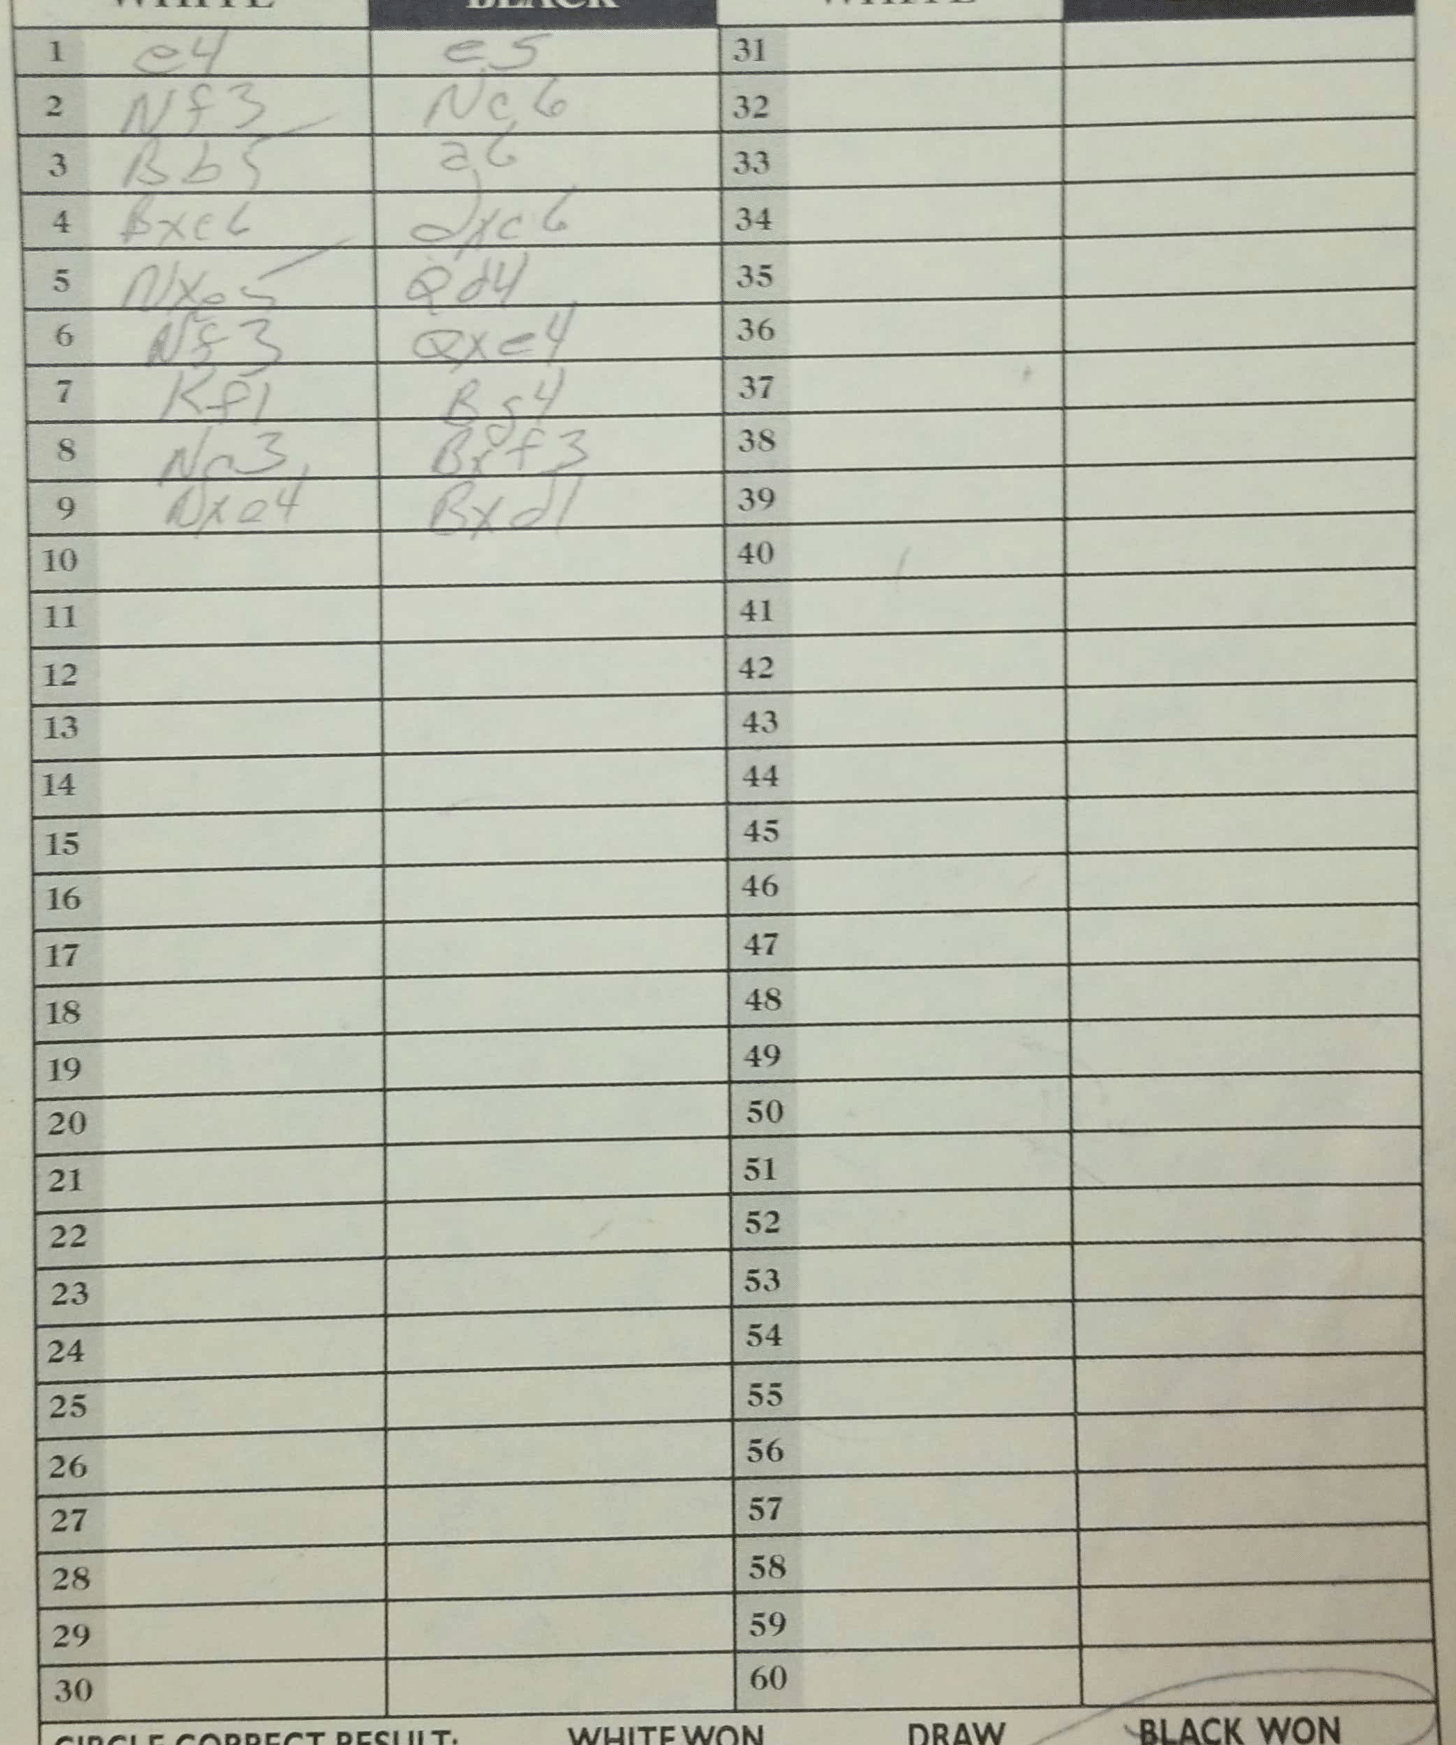 WHITE BLACK WHITE
1 e4 e5 31
2 Nf3 Nc6 32
3 Bb5 a6 33
4 Bxc6 dxc6 34
5 Nxe5 Qd4 35
6 Nf3 Qxe4 36
7 Kf1 Bg4 37
8 Nc3 Bxf3 38
9 Nxe4 Bxd1 39
10 40
11 41
12 42
13 43
14 44
15 45
16 46
17 47
18 48
19 49
20 50
21 51
22 52
23 53
24 54
25 55
26 56
27 57
28 58
29 59
30 60
CIRCLE CORRECT RESULT: WHITE WON DRAW BLACK WON